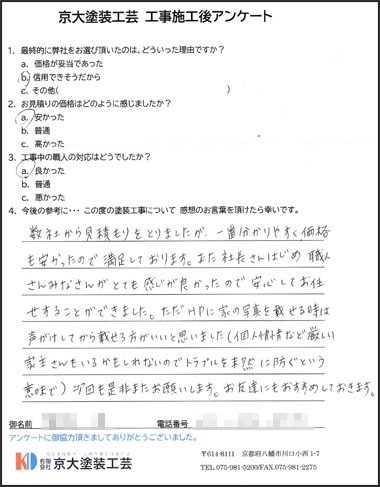 京大塗装工芸 工事施工後アンケート
1. 最終的に弊社をお選び頂いたのは、どういった理由ですか?
a. 価格が妥当であった
b. 信用できそうだから
c. その他( )
2. お見積りの価格はどのように感じましたか?
a. 安かった
b. 普通
c. 高かった
3. 工事中の職人の対応はどうでしたか?
a. 良かった
b. 普通
c. 悪かった
4. 今後の参考に・・・ この度の塗装工事について 感想のお言葉を頂けたら幸いです。
数社から見積もりをとりましたが、一番分かりやすく、価格
も安かったので満足しております。また社長さんはじめ職人
さんみなさんがとても感じが良かったので安心してお任
せすることができました。ただHPに家の写真を載せる時は
声がけしてから載せる方がいいと思いました(個人情情など厳しい
家主さんもいるかもしれないのでトラブルを未然に防ぐという
意味で)次回も是非またお願いします。お友達にもおすすめしておきます。
御名前 電話番号
アンケートに御協力頂きましてありがとうございました。
KD 有限会社 京大塗装工芸
〒614-8111 京都府八幡市川口小西1-7
TEL.075-981-5200/FAX.075-981-2275